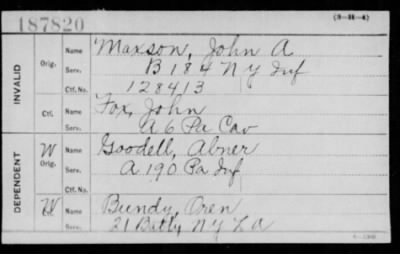 187820
(3-H-4)
INVALID
Orig. Name Maxson, John A
Serv. B 184 N Y Inf
Ctf. No. 128413
Ctf. Name Fox, John
Serv. A 6 Pa Cav
DEPENDENT
W Orig. Name Goodell, Abner
Serv. A 190 Pa Inf
Ctf. No.
W Name Bundy, Oren
Serv. 21 Batty N Y L A